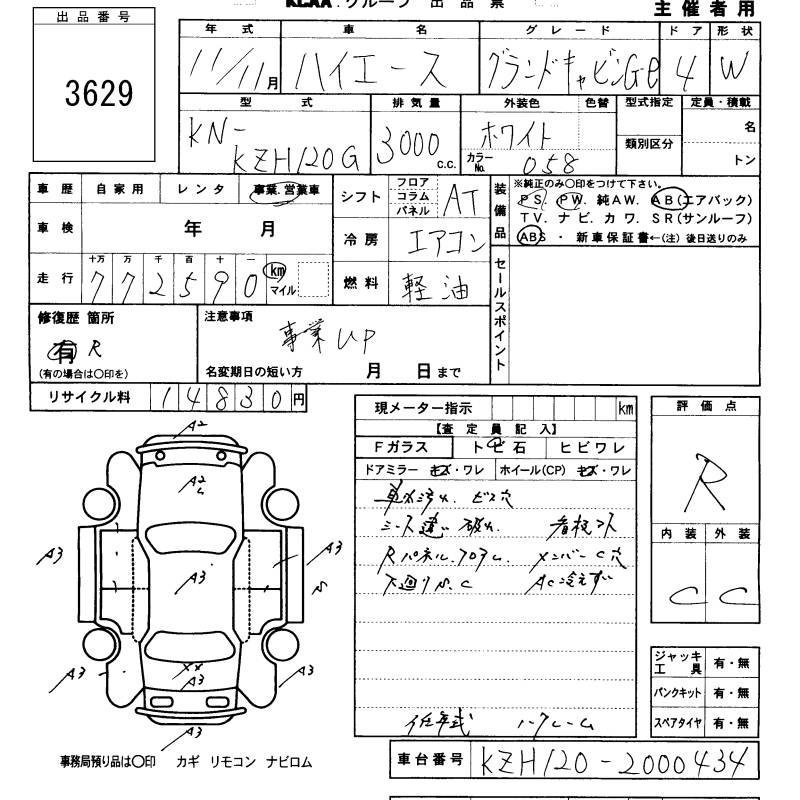 KCAA グループ 出品票
主催者用
出品番号
3629
年式 車名 グレード ドア 形状
11/11月 ハイエース グランドキャビンG-e 4 W
型式 排気量 外装色 色替 型式指定 定員・積載
KN-
KZH120G 3000 c.c. ホワイト 類別区分 名
カラーNo. 058 トン
車歴 自家用 レンタ 事業.営業車
シフト フロア コラム パネル AT
装備品
※純正のみ〇印をつけて下さい。
PS. PW. 純AW. AB(エアバック)
TV. ナビ. カワ. SR(サンルーフ)
ABS ・ 新車保証書←(注) 後日送りのみ
車検 年 月
冷房 エアコン
走行 十万 万 千 百 十 一
772590 km マイル
燃料 軽油
セールスポイント
修復歴 箇所
有 R
(有の場合は〇印を)
注意事項
事業UP
名変期日の短い方 月 日まで
リサイクル料 14830円
現メーター指示 km
【査定員記入】
Fガラス トビ石 ヒビワレ
ドアミラー キズ・ワレ ホイール(CP) キズ・ワレ
車内汚れ. ビス穴
シート違い 破れ. 看板コン
Rパネル.フロアし. メンバーC穴
下廻りS.C AC冷えず
任年式 ハクレーム
評価点
R
内装 外装
C C
ジャッキ 工具 有・無
パンクキット 有・無
スペアタイヤ 有・無
A2
A2
A3
A3
A3
A3
A3
XX
A3
A3
S
事務局預り品は〇印 カギ リモコン ナビロム
車台番号 KZH120-2000434